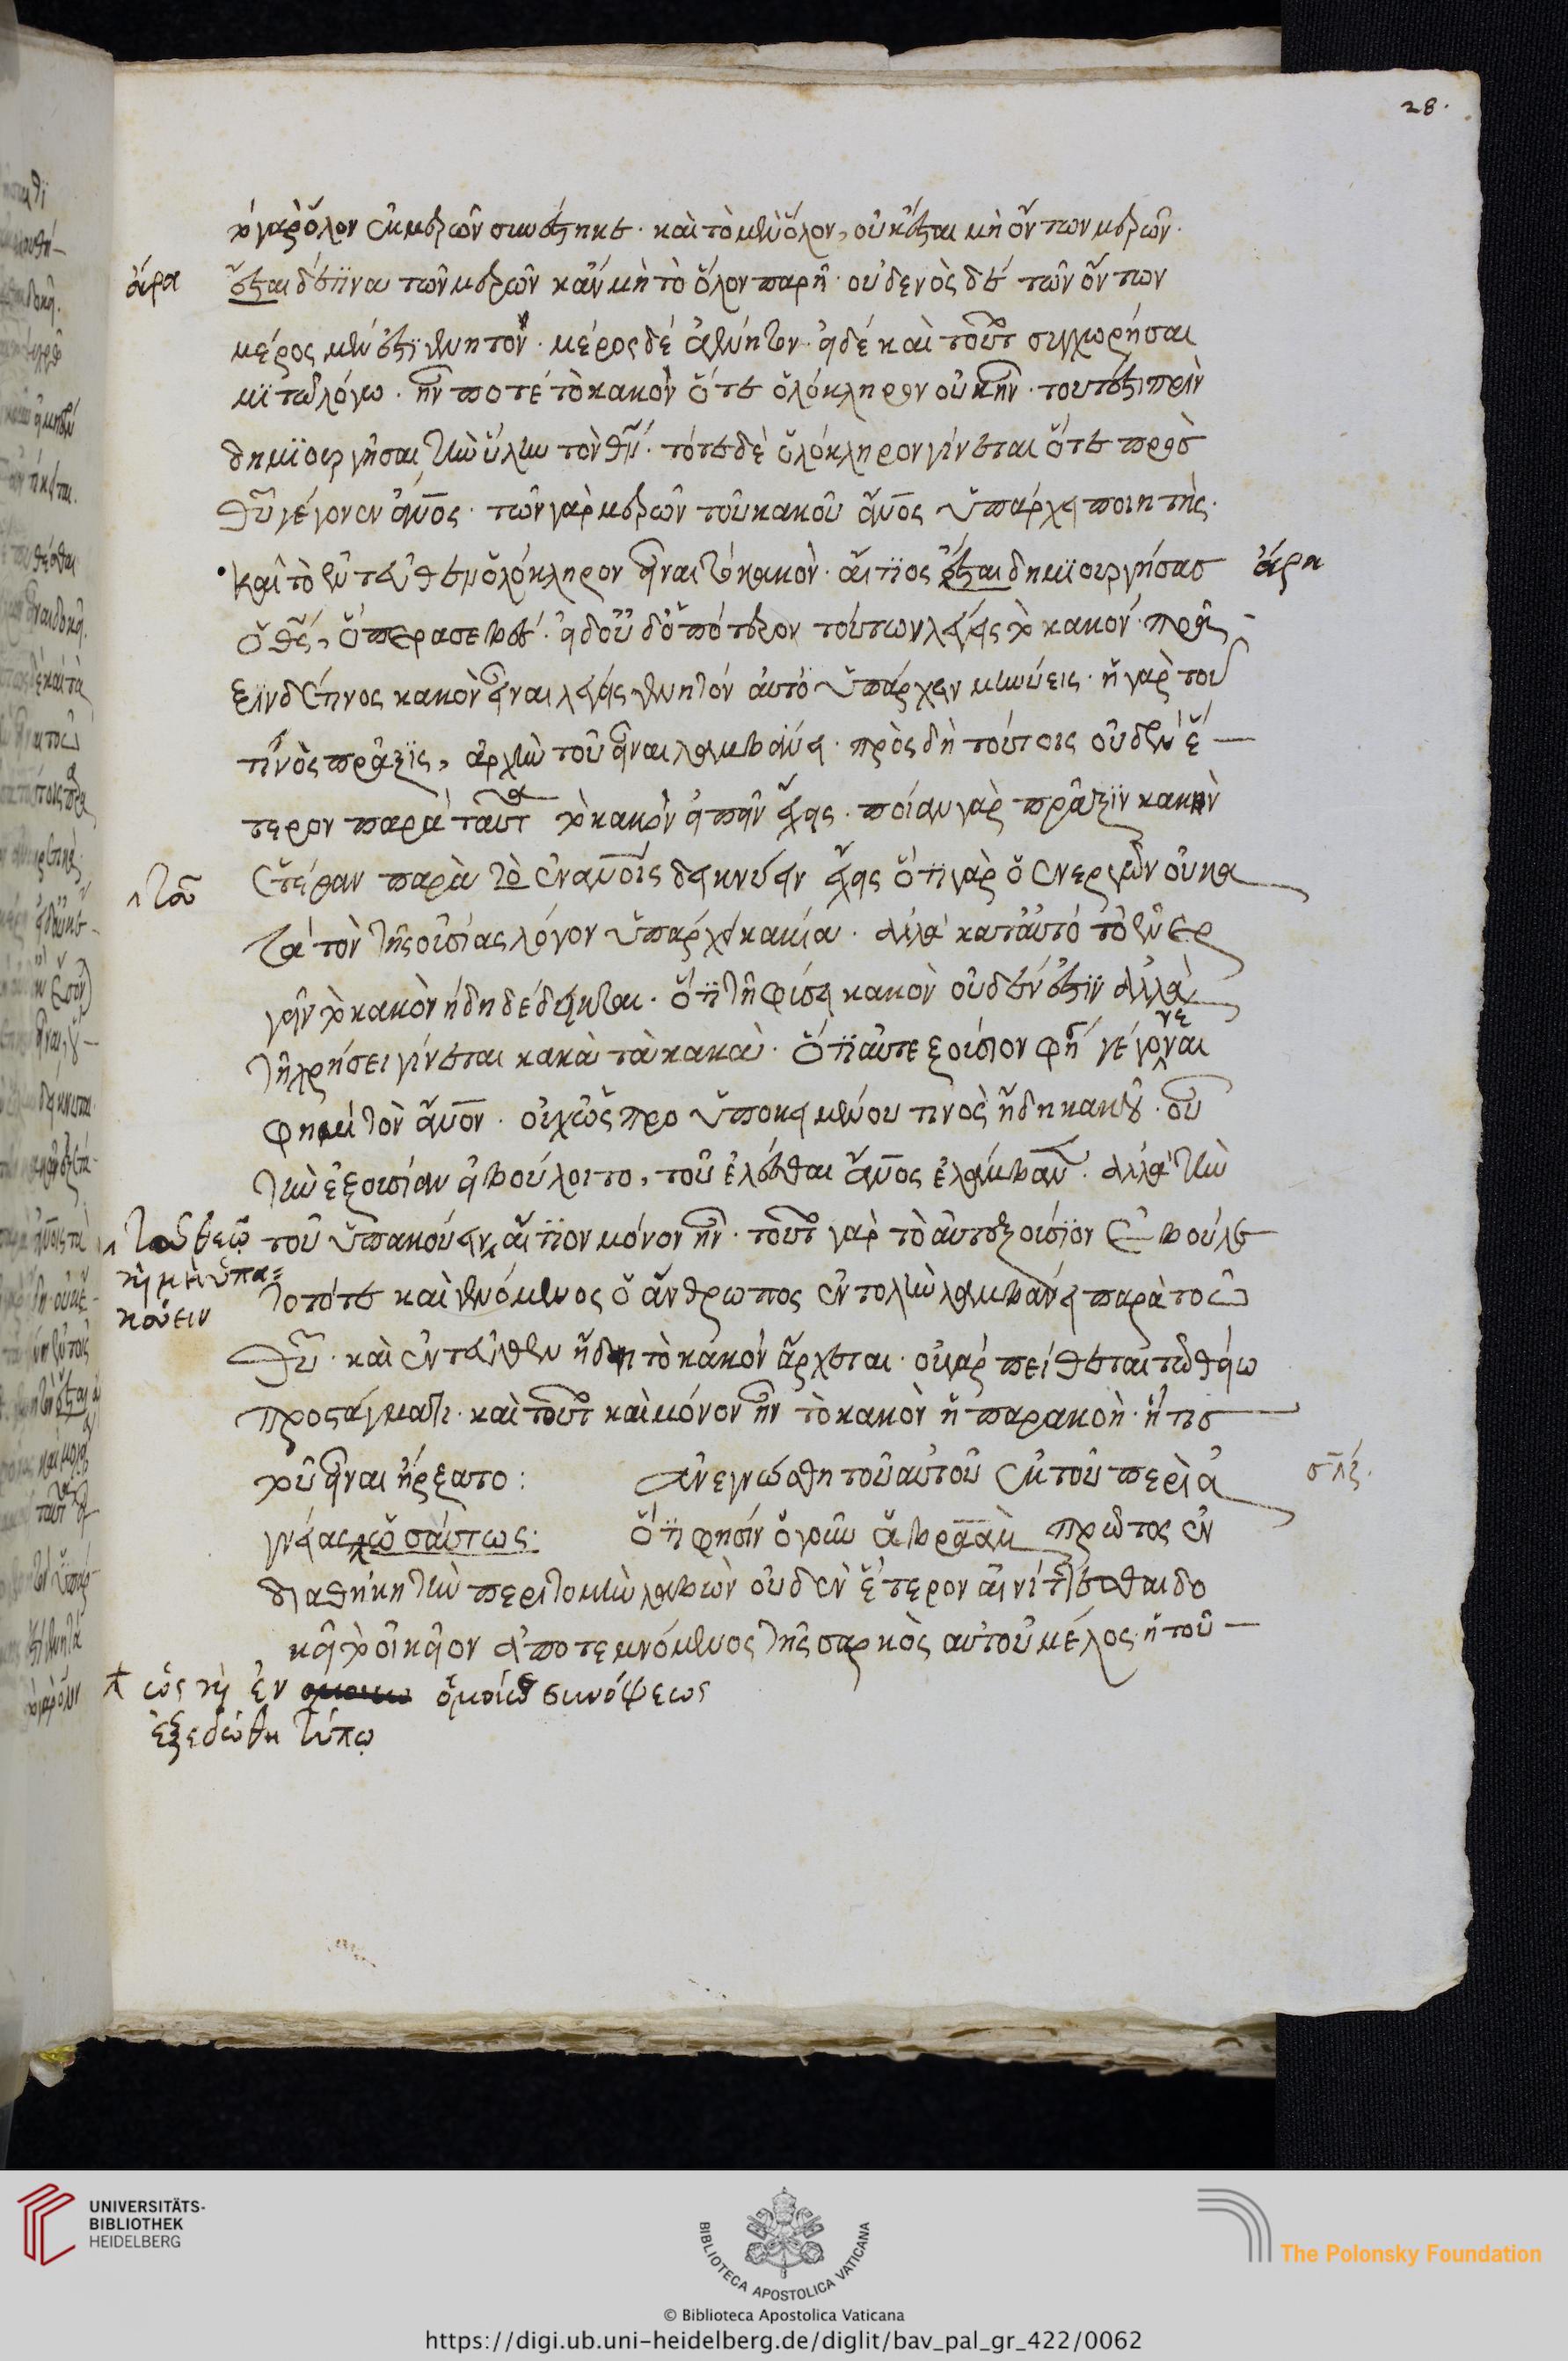 28.
τὸ γὰρ ὅλον ἐκ μερῶν συνέστηκε. καὶ τὸ μὲν ὅλον, οὐκ ἔσται μὴ ὄντων μερῶν.
ἄρα ἔσται δέ τινα τῶν μερῶν κἂν μὴ τὸ ὅλον παρῇ. οὐδενὸς δὲ τῶν ὄντων
μέρος μέν ἐστι γενητὸν. μέρος δέ ἀγένητον. εἰ δέ καὶ τοῦτο συγχωρήσαι
μι τῷ λόγῳ. ἦν ποτέ τὸ κακὸν ὅτε ὁλόκληρον οὐκ ἦν. τουτέστι πρὶν
δημιουργῆσαι τὴν ὕλην τὸν θν. τότε δὲ ὁλόκληρον γίνεται ὅτε πρὸσ
θυ γέγονεν ἄνος. τῶν γὰρ μερῶν τοῦ κακοῦ ἄνος ὑπάρχει ποιητής.
καὶ τὸ ἐντεῦθεν ὁλόκληρον εἶναι τὸ κακὸν. αἴτιος ἔσται δημιουργήσασ ἄρα
ὁ θς, ὅπερ ἀσεβές. εἰ δ' οὖν δ' ὁπότερον τούτων λέγεις τὸ κακόν. πρᾶ
ξιν δέ τινος κακὸν εἶναι λέγεις γενητὸν αὐτὸ ὑπάρχειν μηνύεις. ἡ γὰρ του
τινὸς πρᾶξις, ἀρχὴν τοῦ εἶναι λαμβάνει. πρὸς δὴ τούτοις οὐδὲν ἕ
τερον παρὰ ταῦτα τὸ κακὸν εἰπεῖν ἔχεις. ποίαν γὰρ πρᾶξιν κακὴν
ἑτέραν παρὰ τὸ ἐν ἀνοις δεικνύειν ἔχεις ὅτι γὰρ ὁ ἐνεργῶν οὐ κα
τὰ τὸν τῆς οὐσίας λόγον ὑπάρχει κακία. ἀλλὰ κατ' αὐτὸ τὸ ἐνερ
γεῖν τὸ κακὸν ἤδη δέδεικται. ὅτι τῇ φύσει κακὸν οὐδέν ἐστιν ἀλλὰ
τῇ χρήσει γίνεται κακὰ τὰ κακὰ. ὅτι αὐτεξούσιον φησὶ γεγονέναι
φημὶ τὸν ἄνον. οὐχ ὡς προϋποκειμένου τινὸς ἤδη κακοῦ. οὗ
τὴν ἐξουσίαν εἰ βούλοιτο, τοῦ ἑλέσθαι ἄνος ἐλάμβανεν. ἀλλὰ τὴν
τοῦ ὑπακούειν αἴτιον μόνον ἦν. τοῦτο γὰρ τὸ αὐτεξούσιον ἐβούλε
τῷ θεῷ
καὶ μὴ ὑπα=
κούειν
το τότε καὶ γενόμενος ὁ ἄνθρωπος ἐντολὴν λαμβάνει παρὰ τοῦ
θυ. καὶ ἐντεῦθεν ἤδη τὸ κακόν ἄρχεται. οὐ γάρ πείθεται τῷ θείῳ
προστάγματι. καὶ τοῦτο καὶ μόνον ἦν τὸ κακὸν ἡ παρακοὴ. ἥτισ
τοῦ εἶναι ἤρξατο: ἀνεγνώσθη τοῦ αὐτοῦ ἐκ τοῦ περὶ ἁ
γνείας ὡσαύτως. ὅτι φησίν ὁ γοῦν ἀβραὰμ πρῶτος ἐν
διαθήκῃ τὴν περιτομὴν λαβὼν οὐδὲν ἕτερον αἰνίττεσθαι δο
κεῖ τὸ οἰκεῖον ἀποτεμνόμενος τῆς σαρκὸς αὐτοῦ μέλος. ἢ τοῦ
ὡς καὶ ἐν ὁμοίῳ συνόψεως
ἐξεδόθη τύπῳ
UNIVERSITÄTS-
BIBLIOTHEK
HEIDELBERG
BIBLIOTECA APOSTOLICA VATICANA
The Polonsky Foundation
© Biblioteca Apostolica Vaticana
https://digi.ub.uni-heidelberg.de/diglit/bav_pal_gr_422/0062